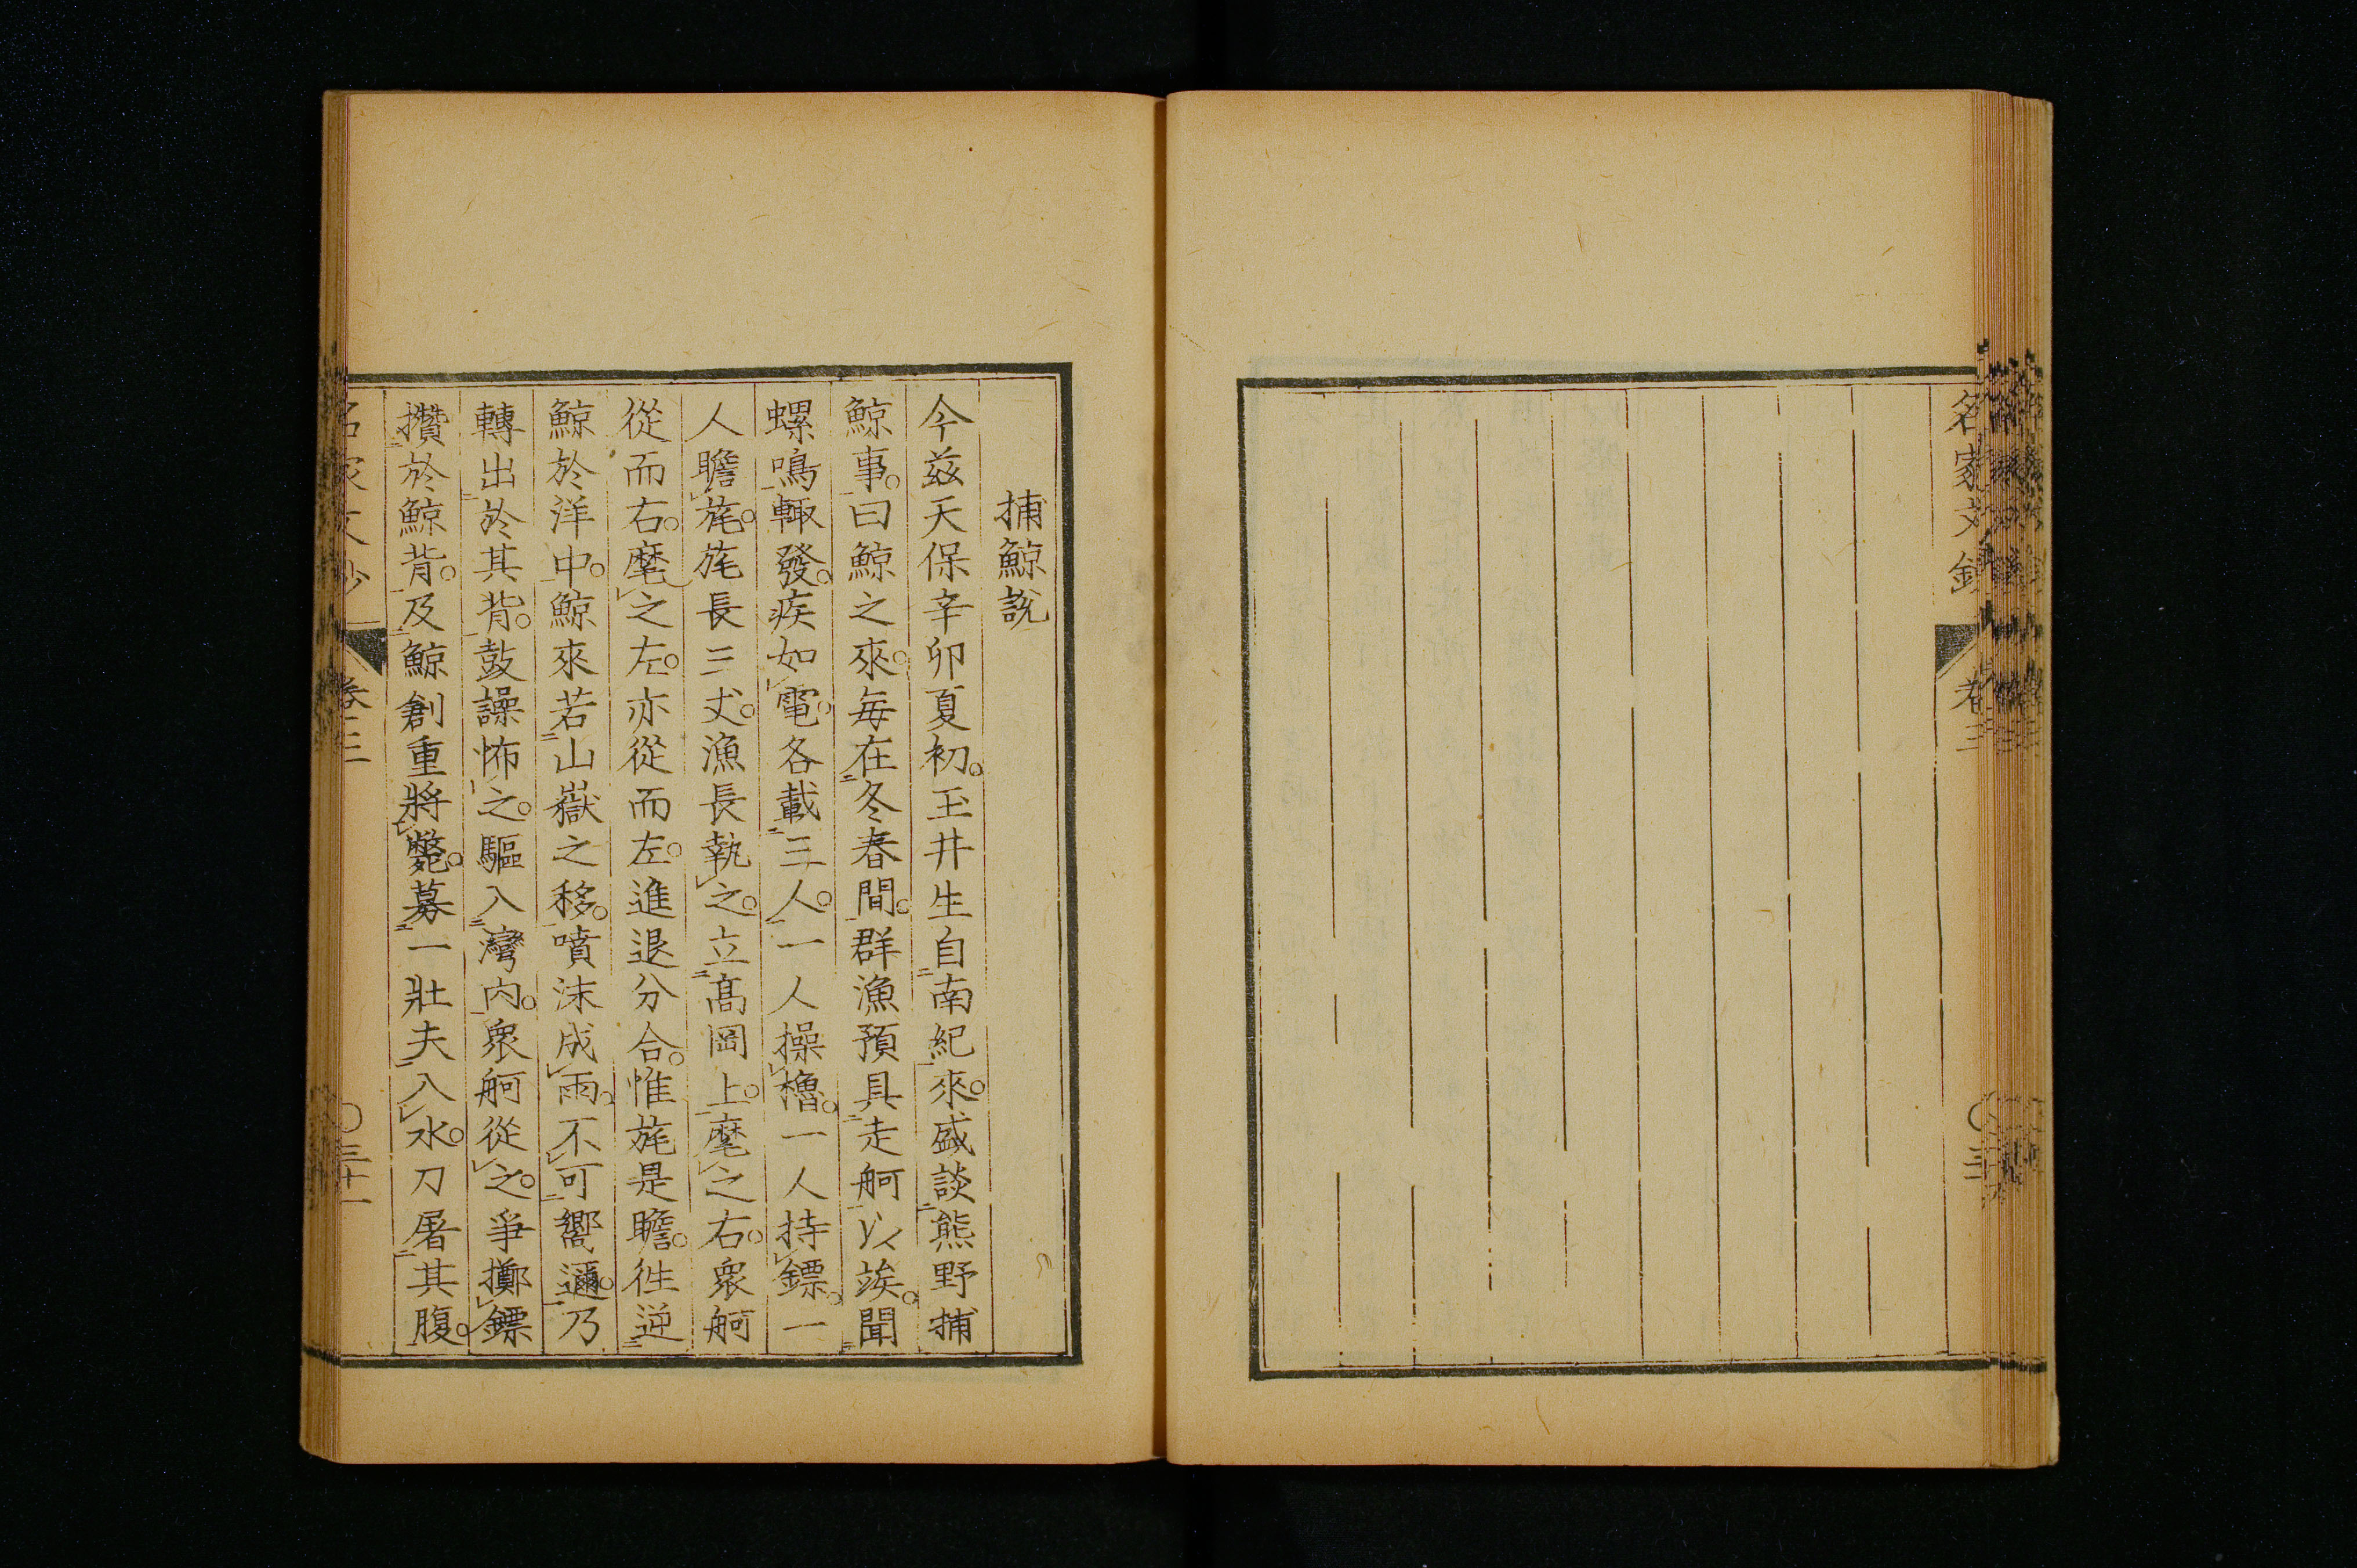 名家文鈔
卷三
捕鯨說
今茲天保辛卯夏初。玉井生自南紀來。盛談熊野捕
鯨事。曰鯨之來。每在冬春間。群漁預具走舸以竢。聞
螺鳴輙發。疾如電。各載三人。一人操櫓。一人持鏢。一
人瞻旄。旄長三丈。漁長執之。立高岡上。麾之右。衆舸
從而右。麾之左。亦從而左。進退分合。惟旄是瞻。徃逆
鯨於洋中。鯨來若山嶽之移。噴沫成雨。不可嚮邇。乃
轉出於其背。鼓譟怖之。驅入灣內。衆舸從之。爭擲鏢
攢於鯨背。及鯨創重將斃。募一壯夫入水。刀屠其腹。
名家文鈔
卷三
〇三十一